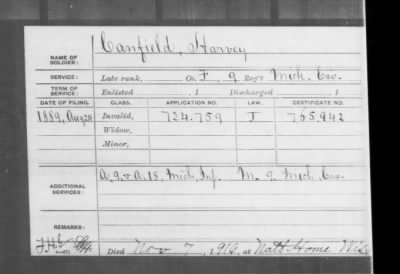 NAME OF SOLDIER: Canfield, Harvey
SERVICE: Late rank, Co. F, 9 Reg't Mich. Cav.
TERM OF SERVICE: Enlisted , 1 Discharged , 1
DATE OF FILING. CLASS. APPLICATION NO. LAW. CERTIFICATE NO.
1889, Aug 28 Invalid, 724.759 J 765,942
Widow,
Minor,
ADDITIONAL SERVICES: A, 9 & A, 18, Mich, Inf. M. 9 Mich. Cav.
REMARKS:
Died Nov 7, 1916, at Natl Home Wis